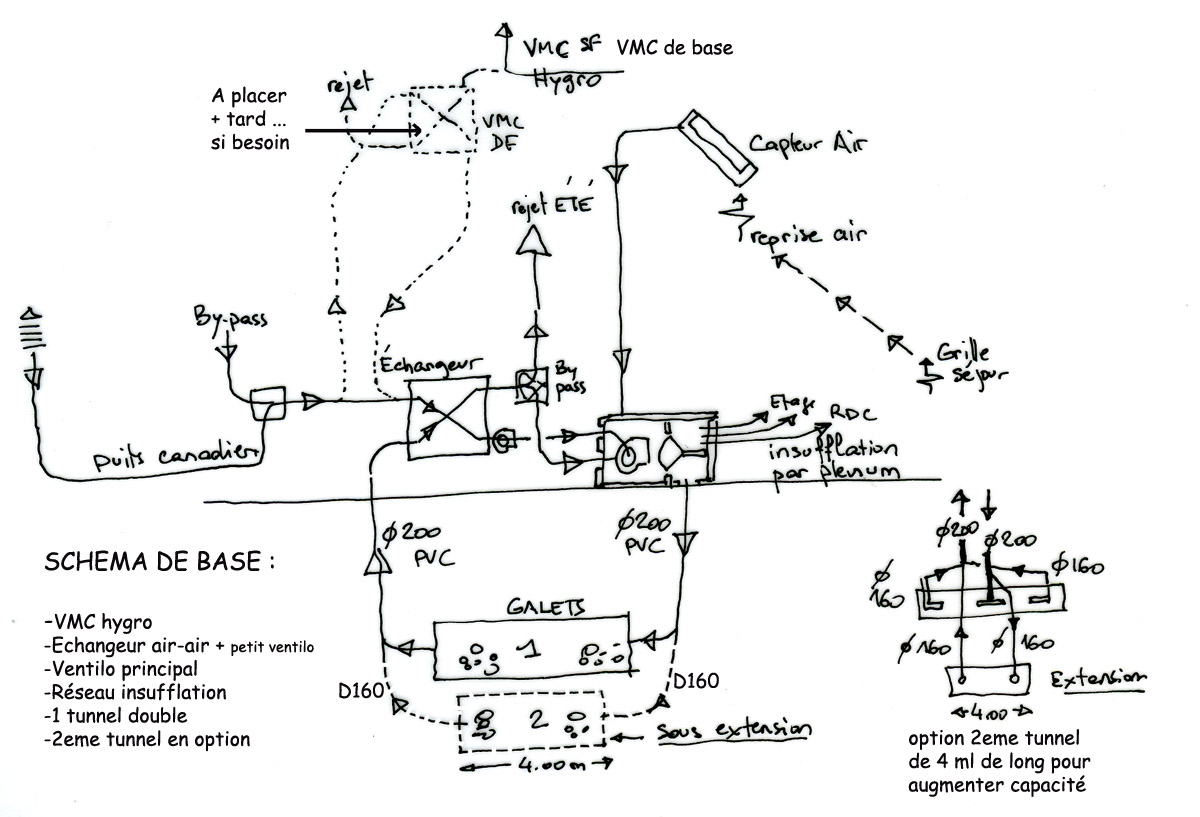 VMC SF VMC de base
Hygro
rejet
A placer
+ tard ...
si besoin
VMC
DF
Capteur Air
rejet ÉTÉ
reprise air
By-pass
Échangeur
By
pass
Grille
séjour
Etage
RDC
insufflation
par plenum
puits canadien
ø200
PVC
ø200
PVC
SCHEMA DE BASE :
-VMC hygro
-Echangeur air-air + petit ventilo
-Ventilo principal
-Réseau insufflation
-1 tunnel double
-2eme tunnel en option
GALETS
1
D160
D160
2
sous extension
4.00m
ø200
ø200
ø
160
ø160
ø160
ø 160
Extension
4.00
option 2eme tunnel
de 4 ml de long pour
augmenter capacité